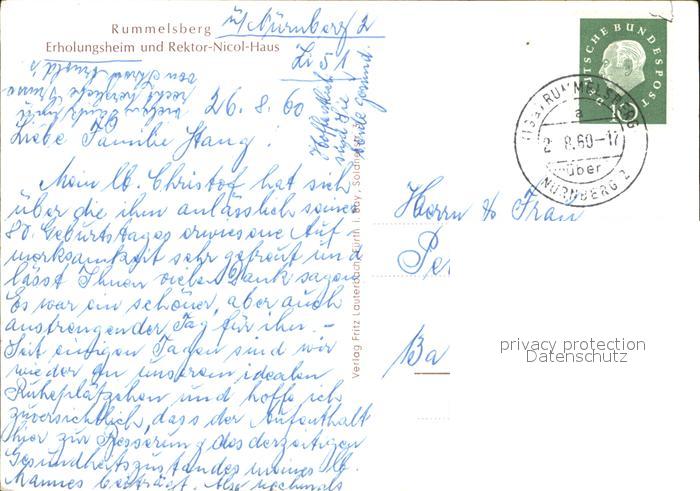 Rummelsberg ü/Nürnberg 2
Erholungsheim und Rektor-Nicol-Haus
Zi 51
26.8.60
Hoffentlich
sind Sie
beide gesund.
Liebe Familie Stang!
Mein lb. Christof hat sich
über die ihm anlässlich seines
80. Geburtstages erwiesene Auf-
merksamkeit sehr gefreut und
lässt Ihnen vielen Dank sagen.
Es war ein schöner, aber auch
anstrengender Tag für ihn. –
Seit einigen Tagen sind wir
wieder an unserem idealen
Ruheplätzchen und hoffe ich
zuversichtlich, dass der Aufenthalt
hier zur Besserung des derzeitigen
Gesundheitszustandes meines lb.
Mannes beiträgt. Also nochmals
vielen Dank und
recht herzliche Grüße
von Ihren
Verlag Fritz Lauterbach, Fürth i. Bay.
DEUTSCHE BUNDESPOST
10
RUMMELSBERG
a
8.60-17
über
NÜRNBERG 2
Herrn & Frau
Pe
Ba
privacy protection
Datenschutz